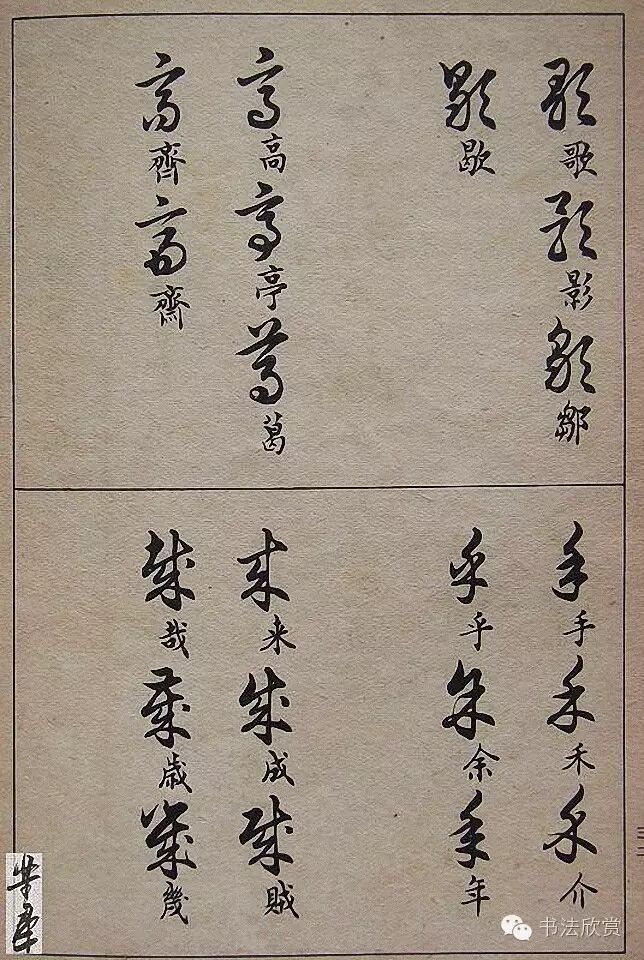 歌 影 鄒
歇
高 亭 葛
齊 齋
手 禾 介
乎 余 年
来 成 賊
哉 歳 幾
书法欣赏